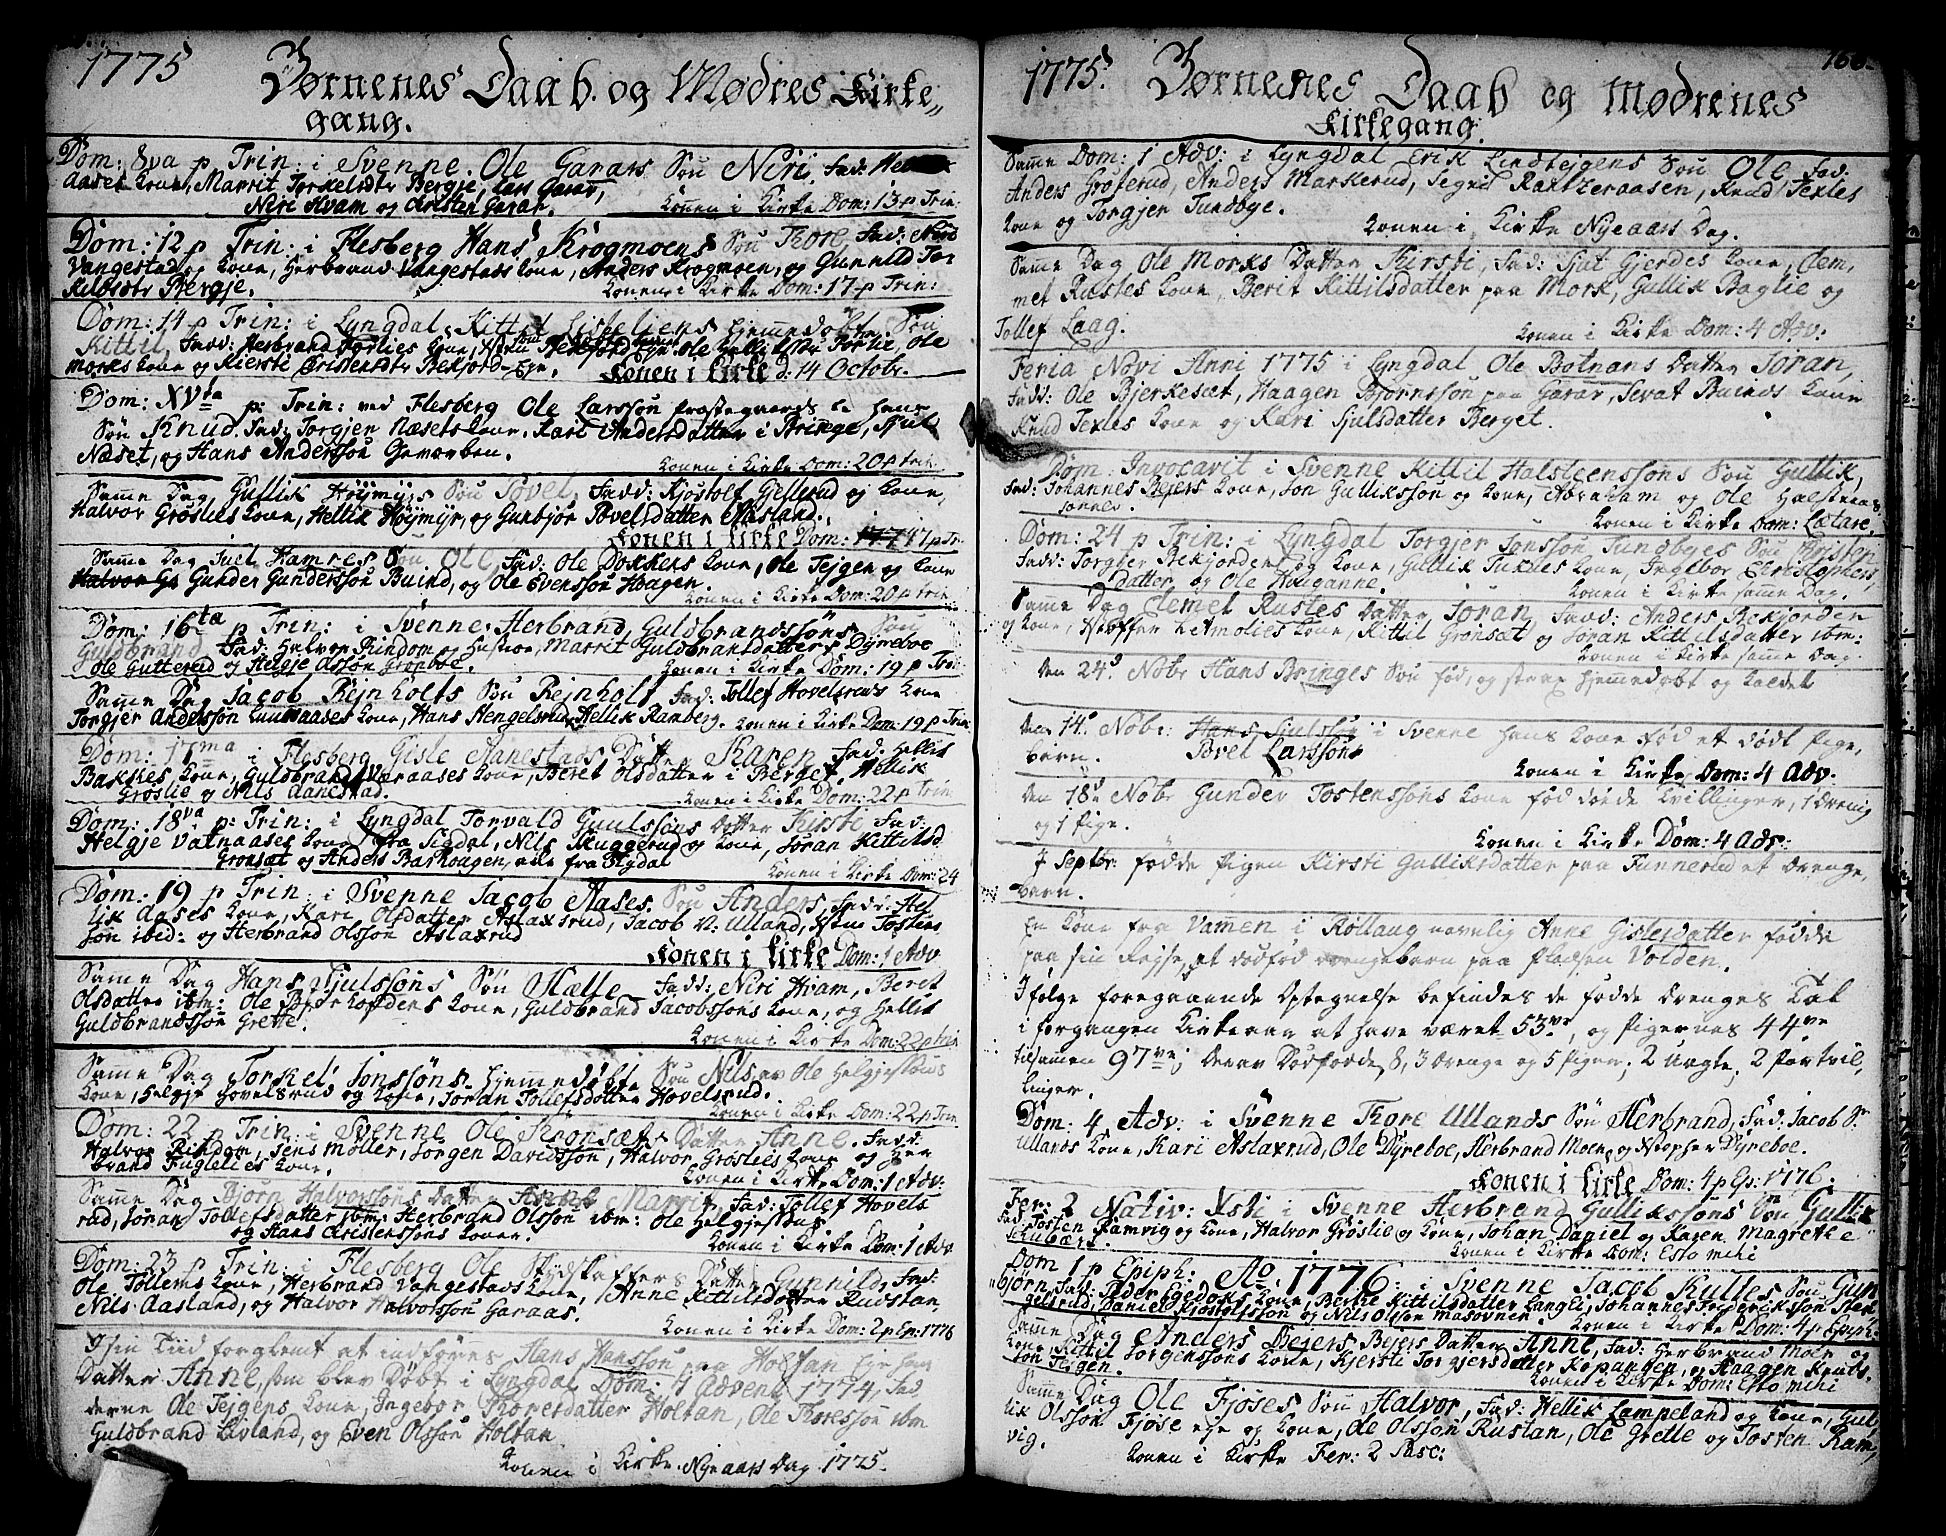 1775 Børnenes Daab. og Mødres Kirke„
gang.
Dom: 8va p Trin: i Svenne. Ole Garaas Søn Niri, Fad:
Aases Kone, Marrit Torkelsdtr Bergje, Lars Garar,
Niri Kvam og Cristen Garar. Konen i Kirke Dom: 13 p Trin:
Dom: 12 p Trin: i Flesberg Hans Krogmoens Søn Thore, Fad: Niri
Vangestad og Kone, Herbrand Vangestass Kone, Anders Krogmoen, og Gunnild Tor
kilsdtr Bergje. Konen i Kirke Dom: 17 p Trin:
Dom: 14 p Trin: i Lyngdal Kittil Lisleliens hjemmedøbt Søn
Kittil, Fadd: Herbrand Forlies Kone,
morks Kone og Kiersti Cristensdtr Bekjord-Eje. Konen i Kirke d: 14 Octobr.
Dom: XVta p: Trin: ved Flesberg Ole Larssøn
Søn Knud. Fad: Torgjer Næsets Kone, Kari Andersdatter i Bringe, Kjul
Næset, og Hans Anderssøn Gevorben.
Konen i Kirke Dom: 20 p trin.
Samme Dag, Gullik Høymyrs Søn Tovel, Fadd: Kjøstolf Gjellerud og Kone,
Halvor Grøslies Kone, Hellik Høymyr, og Gunbjør Tovelsdatter Aasland.
Konen i Kirke Dom: 17 p Tr.
Samme Dag Juel Hamres Søn Ole, Fad: Ole Dokkens Kone, Ole Tejgen og Kone
Halvor Gr Gunder Gunderssøn Buind, og Ole Evenssøn Hoagen.
Konen i Kirke Dom: 20 p trin
Dom: 16ta p Trin: i Svenne, Herbrand Guldbrandssøns Søn
Guldbrand, Fad: Halvor Rindom og Hustroe, Marret Guldbransdatter Dyreboe
Ole Gutterud og Helgje Olssøn Grønboe. Konen i Kirke Dom: 19 p Trin
Samme Dag Jacob Rejnholts Søn Rejnholt Fad: Tollef Hovelsruds Kone
Torgjer Anderssøn Kone, Hans Hengelsrud, Hellik Ramberg. Konen i Kirke Dom: 19 p Trin
Dom: 17ma i Flesberg Gisle Aanestads Datter Karen, Fad: Hellik
Bakkes Kone, Guldbrand Væraases Kone, Beret Olsdatter i Berget, Hellik
Grøslie og Nils Aanestad. Konen i Kirke Dom: 22 p Trin
Dom: 18va p: Trin: i Lyngdal Torvald Guulssøns Datter Kirsti Fad:
Helgje Vatnaases Kone fra Sigdal, Nils Skuggerud og Kone, Jøran Kittilsd
Grønsæt og Anders Barhoagen, alle fra Sigdal
Konen i Kirke Dom: 24
Dom: 19 p Trin: i Svenne Jacob Aases Søn Anders, Fadd: Hel
lik Aases Kone, Kari Olsdatter Aslaxsrud, Jacob N: Ulland, Tosten
søn ibid: og Herbrand Olssøn Aslaxrud
Konen i Kirke Dom: 1 Adv
Samme Dag Hans Kjulssøns Søn Hælle Fadd: Niri Hvam, Beret
Olsdatter ibm: Ole Kone, Guldbrand Jacobssøns Kone, og Hellik
Guldbrandssøn Grette.
Konen i Kirke Dom: 22 p trin
Samme Dag Torkel Jonssøns hjemmedøbt Søn Nils, av Ole Helgjessøns
Kone, Helgje Hovelsrud og Kone, Jøran Tollefsdatter Hovelsrud.
Konen i Kirke Dom: 22 p Trin
Dom: 22 p Trin: i Svenne Ole Kronsæts Datter Anne, Fadd:
Halvor Rindom, Jens Møller, Jørgen Davidssøn, Halvor Grøslies Kone og Her
brand Fuglelies Kone.
Konen i Kirke Dom: 1 Adv:
Samme Dag Bjørn Halvorssøns Datter Marrit, Fad: Tollef Hovels
rud, Jøran Tollefsdatter ibm: Herbrand Olssøn ibm: Ole Helgjessøn
og Hans Cristenssøns Koner. Konen i Kirke Dom: 1 Adv
Dom: 23 p Trin: i Flesberg Ole Skydskaffers Datter Gunnild, Fad:
Ole Tollens Kone, Herbrand Vangestads Kone, Anne Kittilsdatter Rudstan,
Nils Aasland, og Halvor Halvorssøn Garaas.
Konen i Kirke Dom: 2 p Ep: 1776
I sin Tiid forglemt at indføres Hans Hanssøn paa Holtan Eje hans
Datter Anne, som blev Døbt i Lyngdal Dom: 4 Advent 1774, Fad
derne Ole Tejgens Kone, Ingebor Thoresdatter Holtan, Ole Thoressøn ibm
Guldbrand Livland, og Even Olssøn Holtan
Konen i Kirke Nyeaars Dag 1775.
1775. Børnenes Daab og Mødrenes
Kirkegang.
Samme Dom: 1 Adv: i Lyngdal Erik Lindtejgens Søn Ole Fad:
Anders Grøterud, Anders Markerud, Segrid Raxteraasen, Knud Texles
Kone og Torgjer Tundbye. Konen i Kirke Nyeaars Dag.
Samme Dag Ole Morks Datter Kirsti, Fad: Sjut Gjerdes Kone, Clem„
met Rustes Kone, Berit Kittilsdatter paa Mork, Gullik Baglie og
Tollef Laag. Konen i Kirke Dom: 4 Adv.
Feria Novi Anni 1775 i Lyngdal Ole Botnans Datter Jøran,
Fadd: Ole Bjerkesæt, Haagen Bjørnssøn paa Garar, Sevat Buinds Kone
Knud Texles Kone og Kari Sjulsdatter Berget.
Dom: Invocavit i Svenne Kittil Halsteenssøns Søn Gullik,
Fad: Johannes Bejers Kone, Jon Gullikssøn og Kone, Abraham og Ole
Konen i Kirke Dom: Lætare.
Dom: 24 p Trin: i Lyngdal Torgjer Jonssøn Tundbyes Søn Kristen
Fadd: Torgjer Bekjorden og Kone, Gullik Tuxles Kone, Ingebor Christophers,
datter, og Ole Houganne. Konen i Kirke samme Dag.
Samme Dag Clemet Rustes Datter Jøran, Fadd: Anders Bekjorden
og Kone, Kone, Kittil Grønsæt og Jøran Kittilsdatter ibm:
Konen i Kirke samme Dag.
Den 24de Nobr Hans Bringes Søn fød, og strax hjemmedøbt og kaldet
Den 14de Nobr: Hans Sjulssøn i Svenne hans Kone fød et dødt Pige,
barn. Tovel Larssøns
Konen i Kirke Dom: 4 Adv.
Den 18de Nobr Gunder Tostenssøns Kone fød døde Tvillinger, 1 dreng
og 1 Pige.
Konen i Kirke Dom: 4 Adv:
I Septbr: fødde Pigen Kirsti Gulliksdatter paa Funnerud et drenge,
barn.
En Kone fra Vammen i Rollaug navnlig Anne Gislersdatter fødde
paa sin Rejse, et dødfød drengebarn paa Pladsen Volden.
Ifølge foregaaende Optegnelse befindes de fødde Drenges Tal
i forgangen Kirkeaar at have været 53ve, og Pigernes 44ve
tilsamen 97ve; derav Dødfødde 8, 3 drenge og 5 Piger; 2 uægte; 2 Par tvil,
linger.
Dom: 4 Adv: i Svenne Thore Ullands Søn Herbrand, Fad: Jacob Sr
Ullands Kone, Kari Aslaxrud, Ole Dyreboe, Herbrand Moen og Dyreboe.
Konen i Kirke Dom: 4 p Ep: 1776.
Fer: 2 Nativ: Xsti i Svenne Herbrand Gullikssøns Søn Gullik
Fad: Tosten Ramvig og Kone, Halvor Grøslie og Kone, Johan Daniel og Karen Magrethe
Schubert. Konen i Kirke Dom: Esto mihi
Dom 1 p Epiph: Ao 1776: i Svenne Jacob Kulles Søn Gun
bjørn, Fad: Peder Kone, Berthe Kittilsdatter Langli, Johannes Friderikssøn Sten
gelsrud, Daniel Kjøstolfssøn og Nils Olssøn Masovnen. Konen i Kirke Dom: 4 p Epiph:
Samme Dag Anders Bejers Bejers Datter Anne, Fad: Herbrand Moen og
Kone, Kittil Jørginssøns Kone, Kjersti Torgjersdatter Kopangen, og Haagen Knuds,
søn Tejgen. Konen i Kirke Dom: Esto mihi
Samme Dag Ole Fjøses Søn Halvor, Fad: Hellik Lampeland og Kone, Gul,
lik Olssøn Fjøse eje og Kone, Ole Olssøn Rustan, Ole Grette og Tosten Ram,
vig. Konen i Kirke Fer: 2 Pasc: